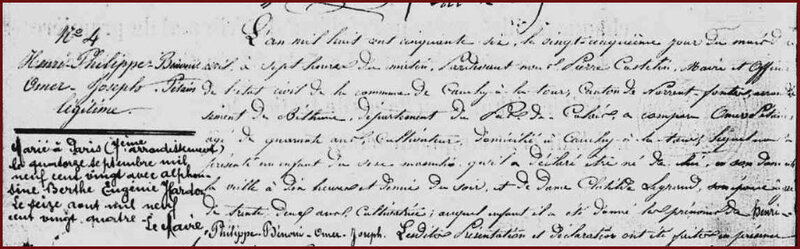 N° 4
Henri-Philippe-Bénoni-
Omer-Joseph Pétain
légitime.
Marié à Paris (7ème
arrondissement)
le quatorze septembre mil
neuf cent vingt avec alphon
sine Berthe Eugénie Hardon
Le seize aout mil neuf
cent vingt quatre - Le Maire
L'an mil huit cent cinquante six, le vingt cinquième jour du mois d'a
vril, à sept heures du matin, Pardevant nous Pierre Castelin, Maire et Officier
de l'état civil de la commune de Cauchy à la tour, Canton de Norrent-fontes, arrondis
sement de Béthune, département du Pas de Calais, a comparu Omer Pétain,
agé de quarante ans, Cultivateur, domicilié à Cauchy à la tour, lequel nous
présenté un enfant du sexe masculin qu'il a déclaré être né de lui, en son domicile
la veille à dix heures et demie du soir, et de Dame Clotilde Legrand, son épouse, âgée
de trente deux ans, Cultivatrice; auquel enfant il a été donné les prénoms de Henri-
Philippe-Bénoni-Omer-Joseph. Lesdites Présentation et déclaration ont été faites en présence